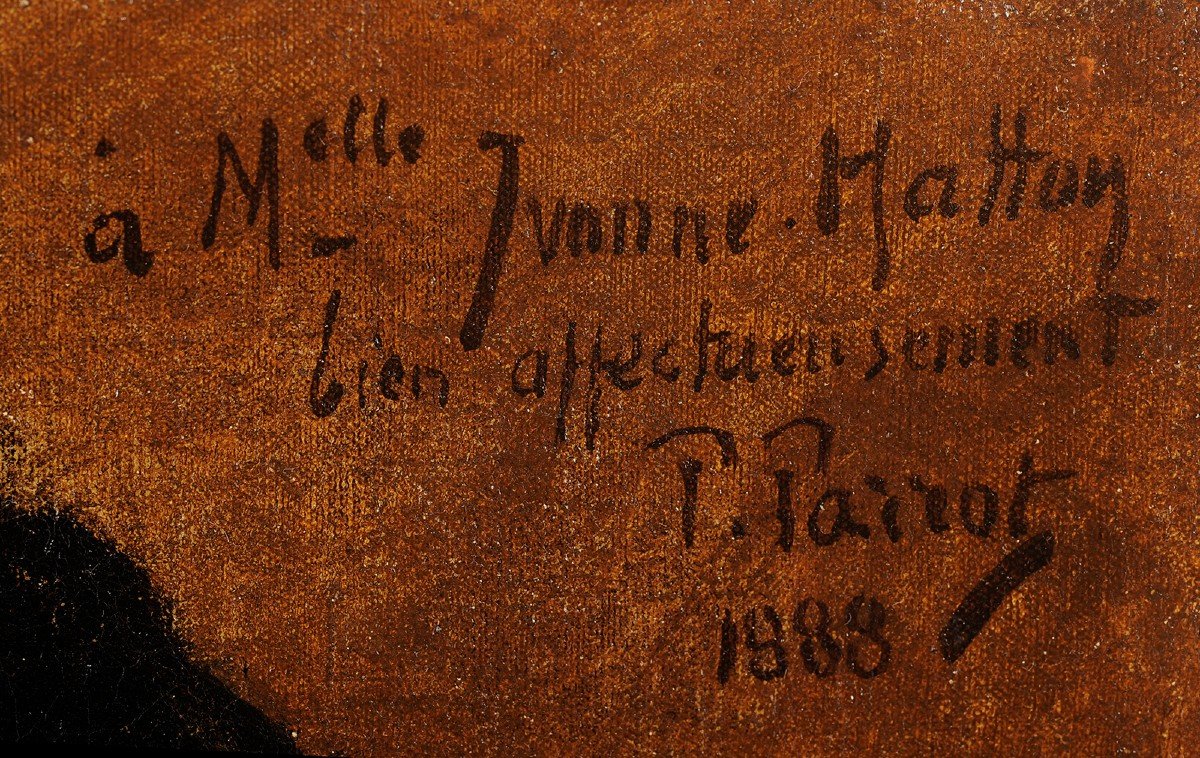 à Melle Yvonne. Hattoy
bien affectueusement
P. Pairot
1988